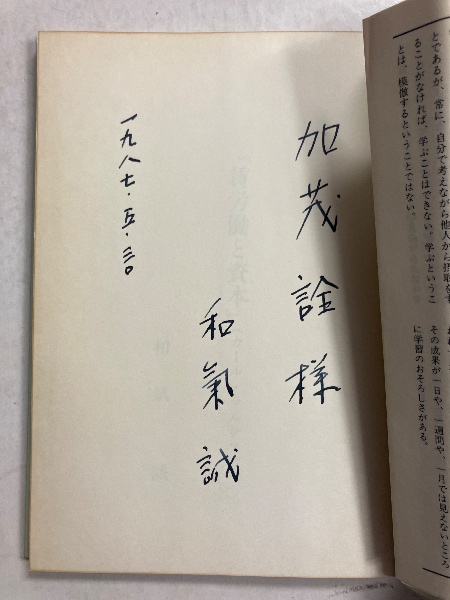 とであるが、常に、自分で考えながら他人から摂取をす
ることがなければ、学ぶことはできない。学ぶというこ
とは、模倣するということではない。
その成果が一日や、一週間や、一月では見えないところ
に学習のおそろしさがある。
加茂詮様
和氣誠
一九八七・五・三〇